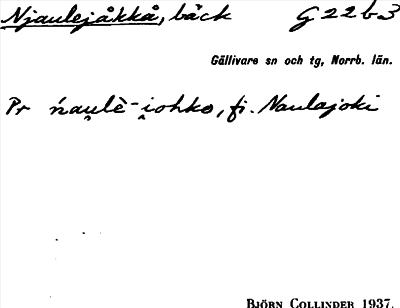 Njaulejåkkå, bäck G22b3
Gällivare sn och tg, Norrb. län.
Pr ńau̯lè-i̯ohko, fi. Naulajoki
BJÖRN COLLINDER 1937.